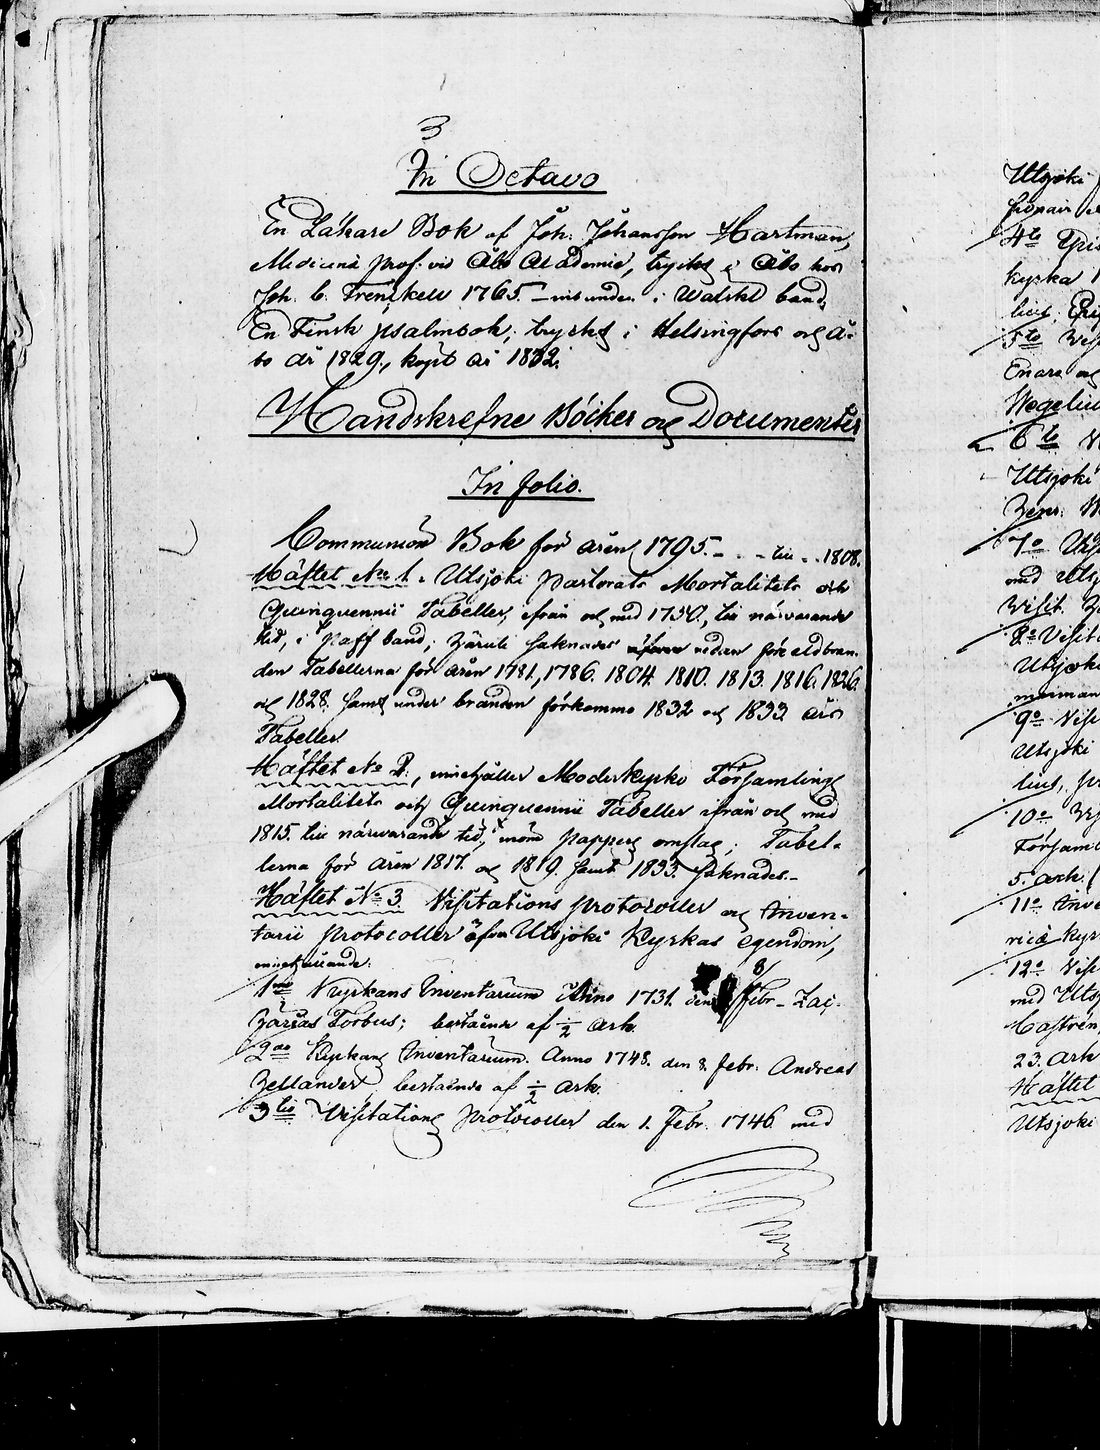 3
In Octavo
En Läkare Bok af Joh. Johansson Hartman,
Medicinä Prof. vid Åbo Academie, tryckt i Åbo hos
Joh. C. Frenckell 1765. – inbunden i Walskt band.
En Finsk psalmbok, tryckt i Helsingfors och Å-
bo år 1829., köpt år 1832.
Handskrefne Böcker och Documenter
In folio.
Communion Bok för åren 1795. - - - till - - 1808.
Häftet No 1. Utsjoki Pastorats Mortalitets och
Quinquennii Tabeller, ifrån och med 1750., till närvarande
tid, i Paff band; Häruti saknades redan före eldbran-
den Tabellerna för åren 1781., 1786. 1804. 1810. 1813. 1816. 1826.
och 1828. samt under branden förkommo 1832 och 1833 års
Tabeller.
Häftet No 2., innehåller Moderkyrko Församlings
Mortalitets och Quinquennii Tabeller ifrån och med
1815. till närvarande tid, inom pappers omslag; Tabel-
lerna för åren 1817. och 1819. samt 1833. saknades. –
Häftet No 3. Visitations protocoller och Inven-
tarii protocoller öfver Utsjoki Kyrkas egendom,
innehållande:
1mo Kyrkans Inventarium Anno 1731. den 8/ Febr. – Zac-
harias Forbus; bestående af ½ Ark.
2do Kyrkans Inventarium. Anno 1748. den 8. Febr. Andreas
Hellander bestående af ½ ark.
3tio Visitations protocoller den 1. Febr. 1746 med
Utsjoki
4to
kyrka
5to
Enare och
Wegelius
6to
Utsjoki
7o
med Utsj
Visit.
8o Visita
Utsjoki
9o Visi
Utsjoki
10o
Församl
5. ark.
11o Inve
12o Visi
med Utsj
Castrén
23. ark
Häftet
Utsjoki